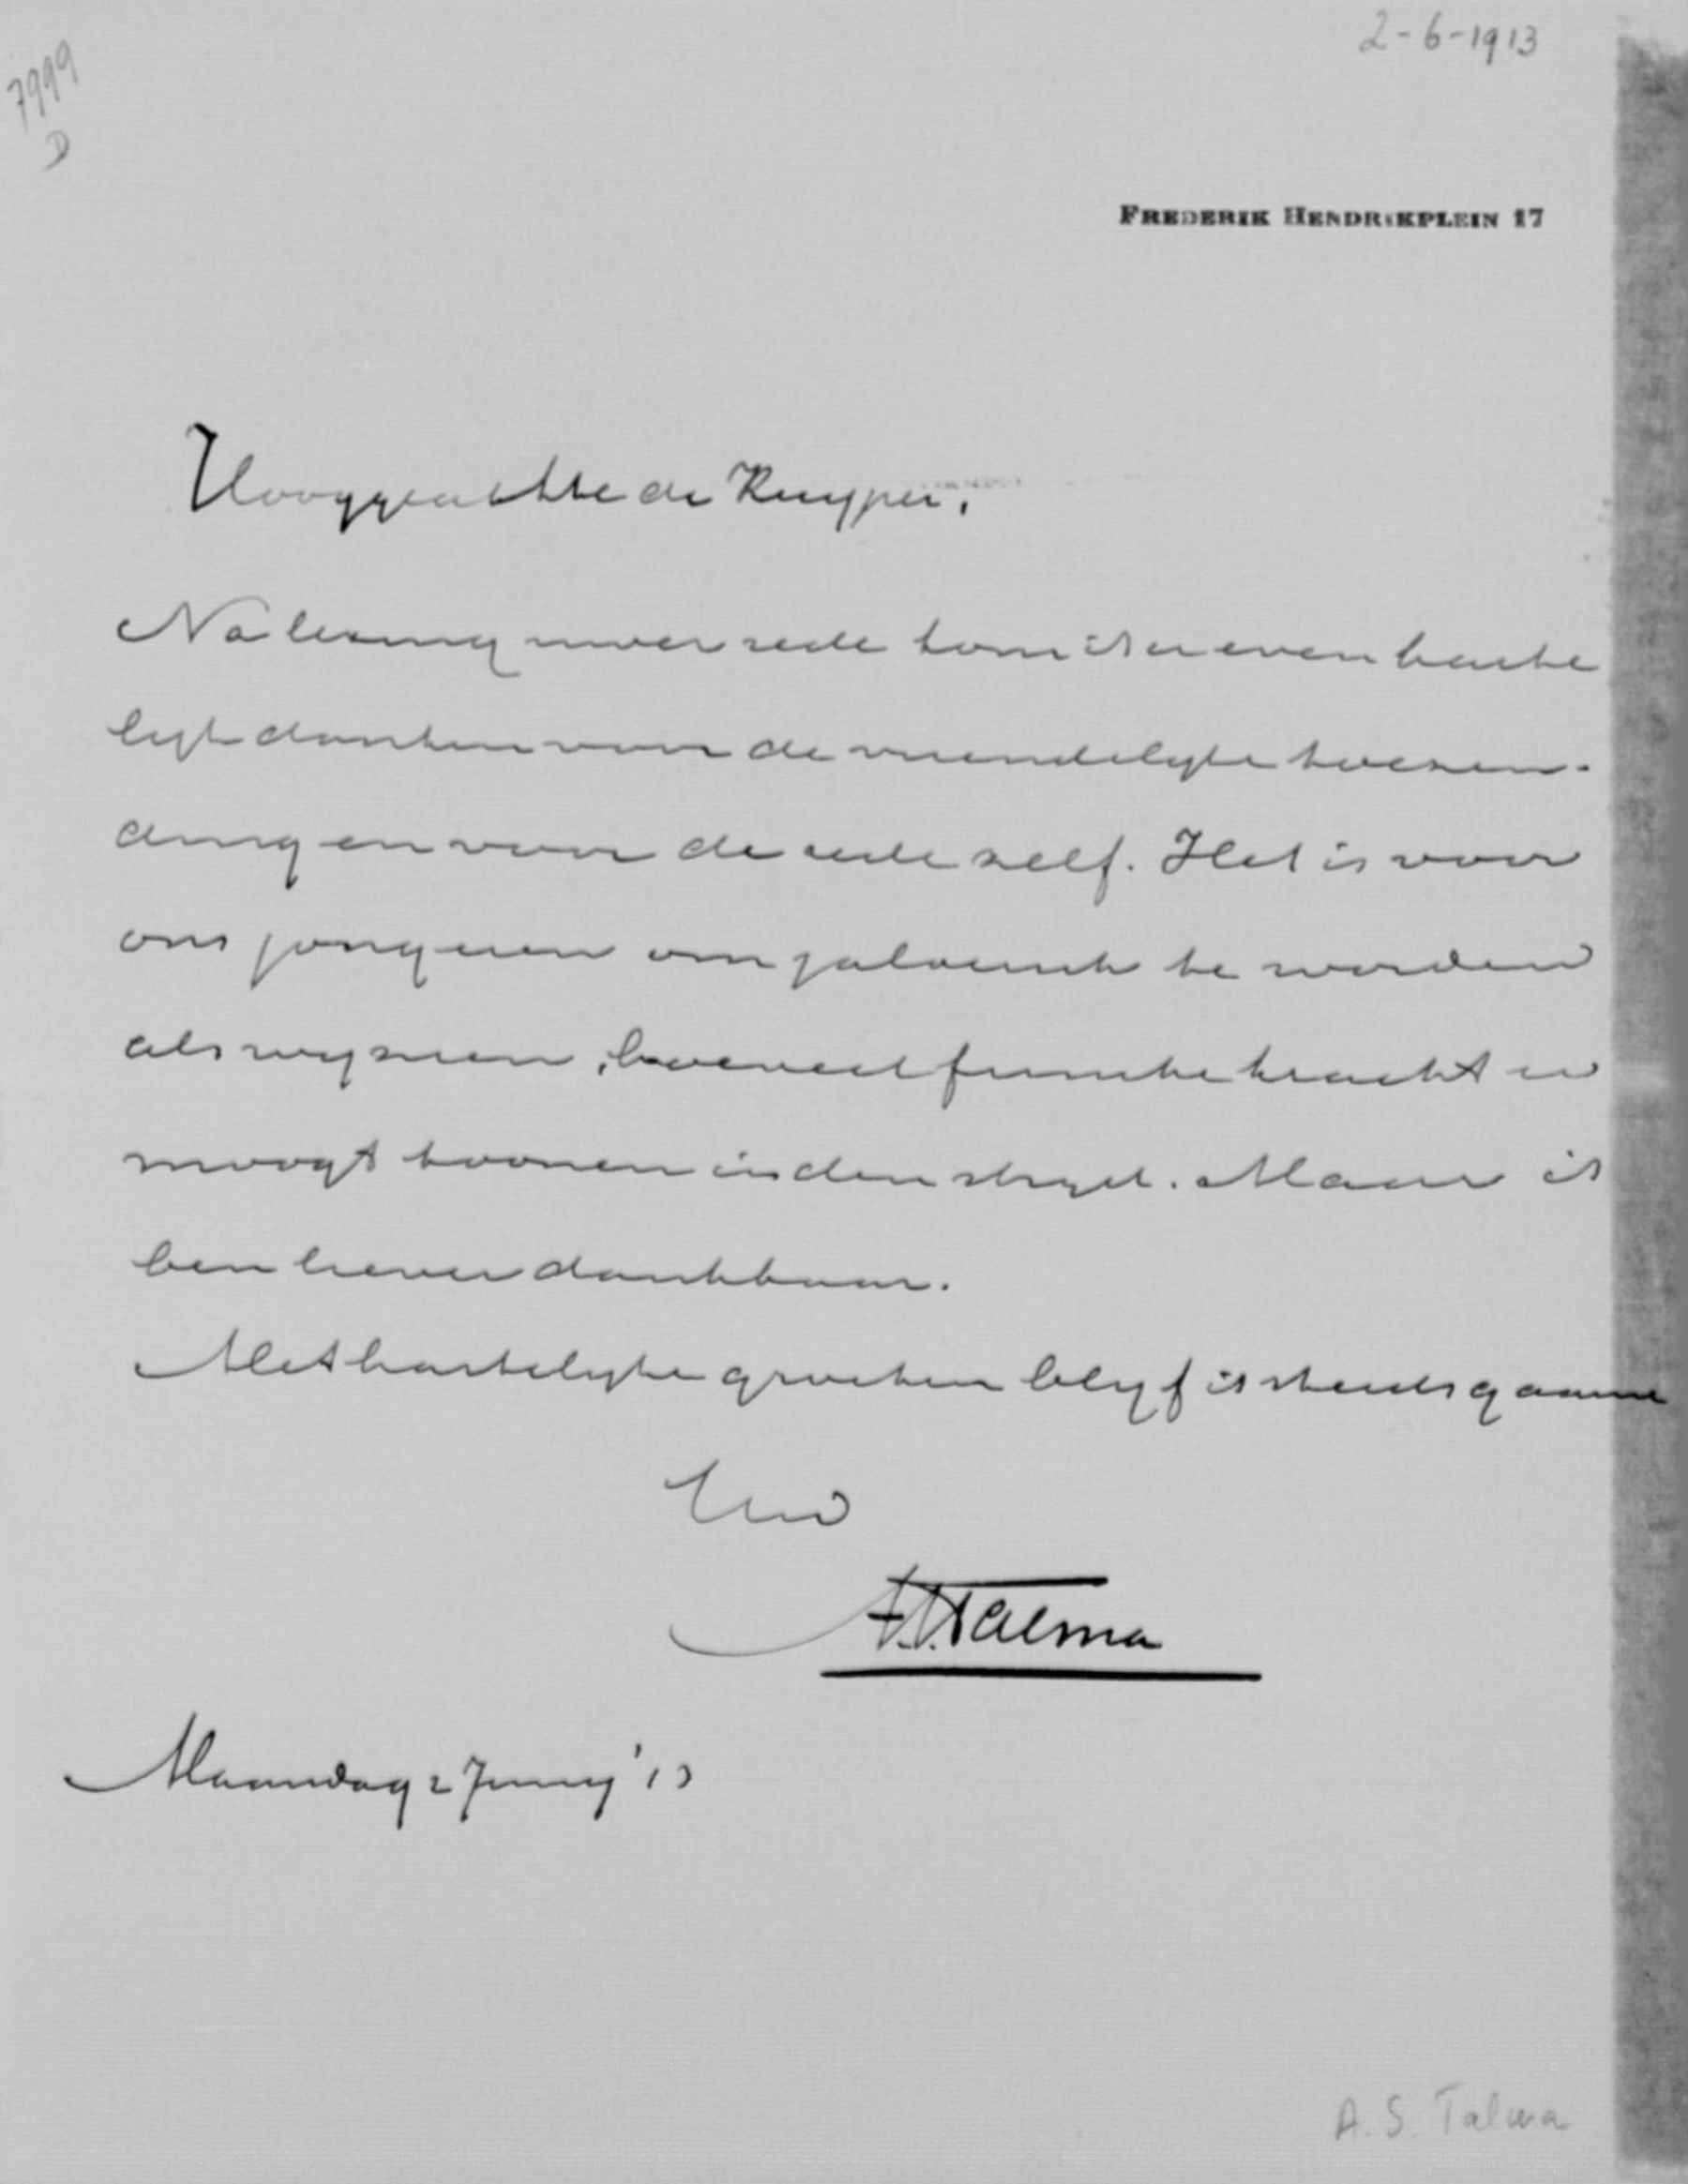 2-6-1913
7999
D
FREDERIK HENDRIKPLEIN 17
Hooggeachte dr Kuyper,
Na lezing uwer rede kom ik u even harte
lyk danken voor de vriendelyke toezen-
ding en voor de rede zelf. Het is voor
ons jongeren om jaloersch te worden
als wy zien, hoeveel frissche kracht u
moogt toonen in den stryd. Maar ik
ben liever dankbaar.
Met hartelyke groeten blyf ik steeds gaarne
Uw
A.S. Talma
Maandag 2 Juny '13
A. S. Talma